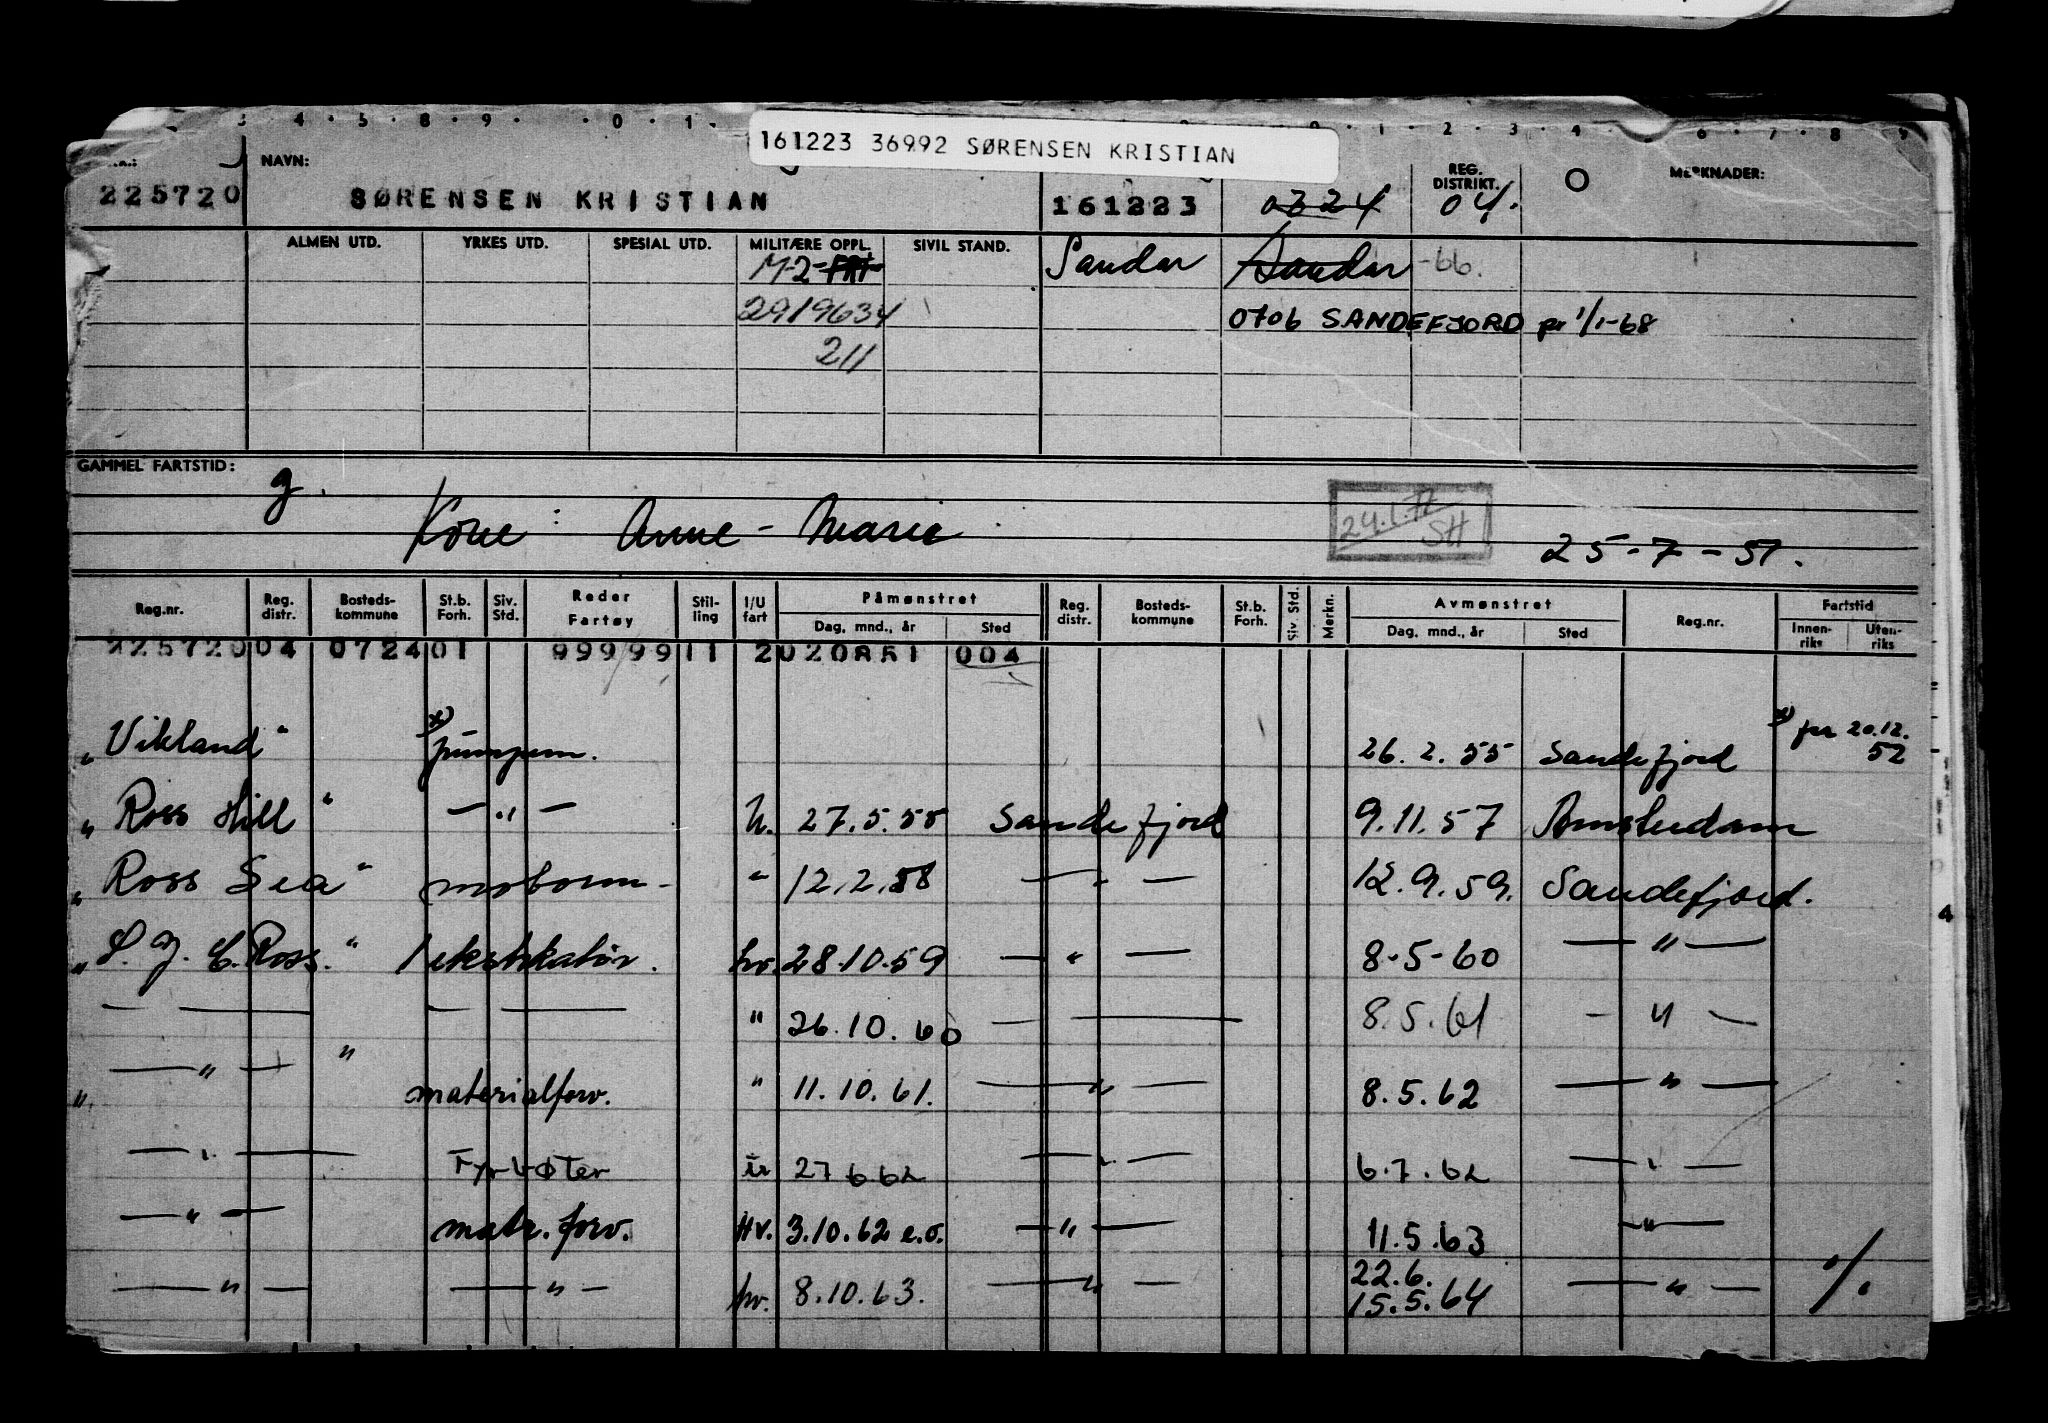 161223 36992 SØRENSEN KRISTIAN
NAVN: REG. DISTRIKT. MERKNADER:
225720 SØRENSEN KRISTIAN 161223 0724 04.
ALMEN UTD. YRKES UTD. SPESIAL UTD. MILITÆRE OPPL. SIVIL STAND.
M-2- Sandar Sandar -66.
2919634 0706 SANDEFJORD pr 1/1-68
211
GAMMEL FARTSTID:
g.
Kone: Anne-Marie 24.1.72 SH 25-7-51.
Reg.nr. Reg. distr. Bosteds-kommune St.b. Forh. Siv. Std. Reder Fartøy Stil-ling I/U fart Påmønstret Dag, mnd., år Sted Reg. distr. Bosteds-kommune St.b. Forh. Siv. Std. Merkn. Avmønstret Dag, mnd., år Sted Reg.nr. Fartstid Innen-riks Uten-riks
225720 04 0724 01 99999 11 2 020851 004
"Vikland" x) pumpem. 26.2.55 Sandefjord x) fra 20.12.52
"Ross Hill" — " — U. 27.5.55 Sandefjord 9.11.57 Amsterdam
"Ross Sea" motorm. " 12.2.58 — " — 12.9.59. Sandefjord.
"S. J. C. Ross." hv. 28.10.59 — " — 8-5-60 — " —
— — — — " 26.10.60 — — 8.5.61 — " —
" — " — " materialforv. " 11.10.61. — " — 8.5.62 — " —
— " — Fyrbøter u 27 6 62 — " — 6.7.62 — " —
— " — matr. forv. Hv. 3.10.62 e.o. — " — 11.5.63 — " —
— " — — " — hv. 8.10.63. — " — 22.6. 15.5.64 — " — ./.